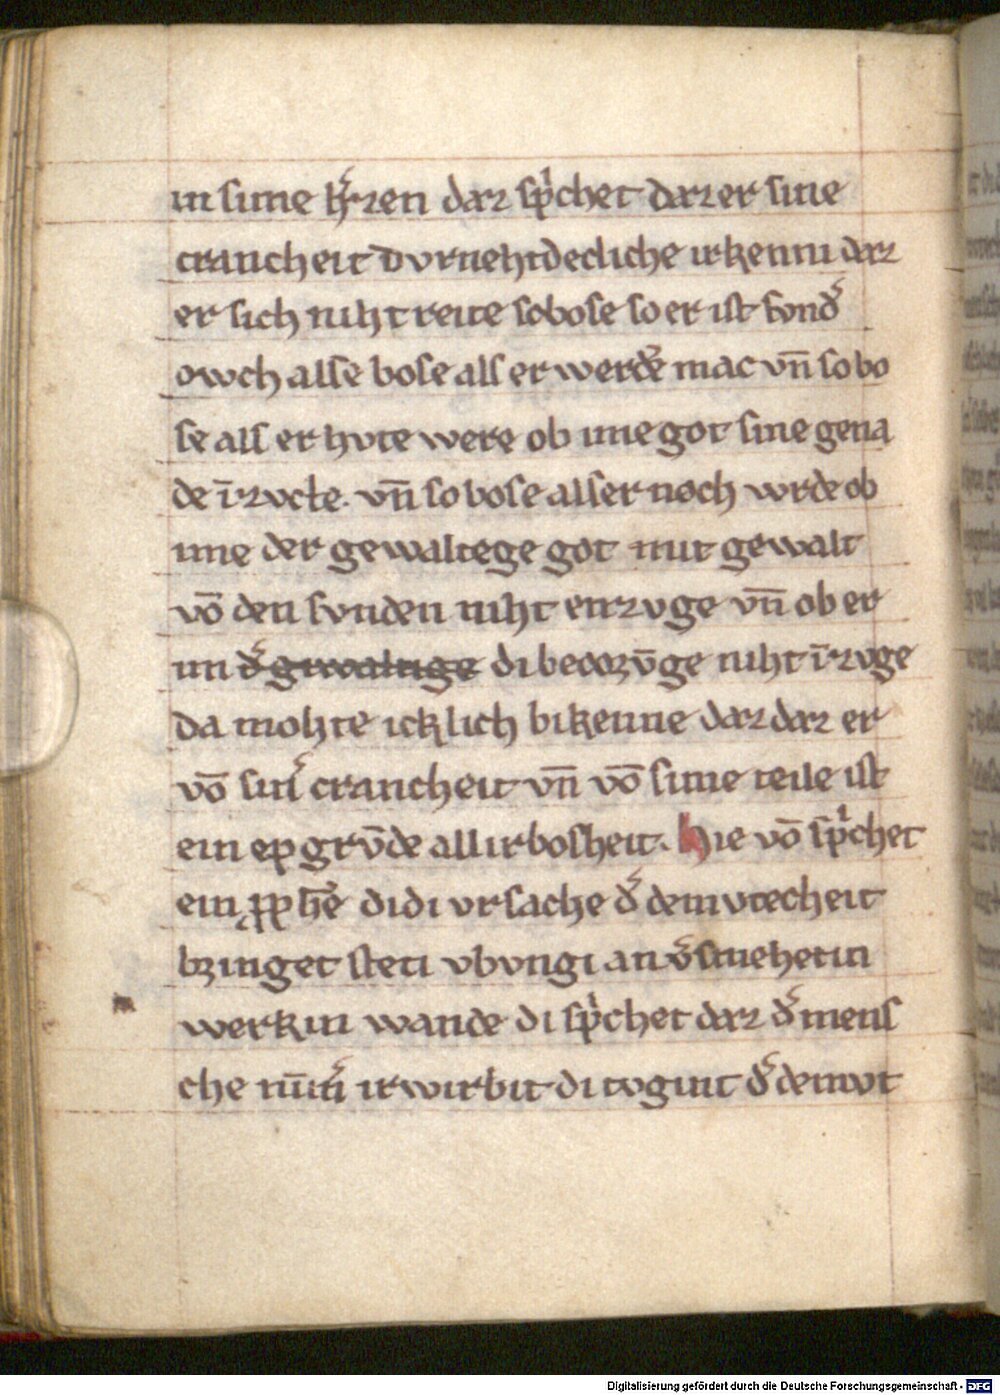 in sime h'rzen daz sp'chet daz er sine
crancheit dvrnehtdecliche irkenni daz
er sich niht reite so bose so er ist svnd'
owch alse bose als er werd'e mac vn̄ so bo
se als er hvte were ob ime got sine gena
de ī'zvcte. vn̄ so bose alser noch wrde ob
ime der gewaltege got mit gewalt
vō den svnden niht enzvge vn̄ ob er
im d' giwaltige di becorv̄ge niht ī'zvge
Da mohte icklich bikenne daz daz er
vō sin' crancheit vn̄ vō sime teile ist
ein ep grv̄de allir bosheit. Hie vō sp'chet
ein ꝓph'e di di vrsache d' demvtecheit
bringet steti vbvngi an v'smehetin
werkin wande di sp'chet daz d' mens
che nīm' irwirbit di tvgint d' demvt
Digitalisierung gefördert durch die Deutsche Forschungsgemeinschaft - DFG